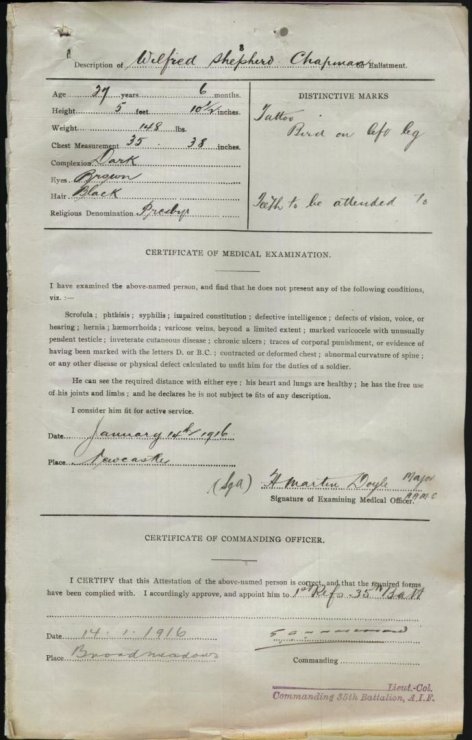 3
Description of Wilfred Shepherd Chapman on Enlistment.
Age 27 years 6 months.
Height 5 feet 10½ inches.
Weight 148 lbs.
Chest Measurement 35 - 38 inches.
Complexion Dark
Eyes Brown
Hair Black
Religious Denomination Presbyr
DISTINCTIVE MARKS
Tattoo
Bird on left leg
Teeth to be attended to
CERTIFICATE OF MEDICAL EXAMINATION.
I have examined the above-named person, and find that he does not present any of the following conditions,
viz. :—
Scrofula ; phthisis ; syphilis ; impaired constitution ; defective intelligence ; defects of vision, voice, or
hearing ; hernia ; hæmorrhoids ; varicose veins, beyond a limited extent ; marked varicocele with unusually
pendent testicle ; inveterate cutaneous disease ; chronic ulcers ; traces of corporal punishment, or evidence of
having been marked with the letters D. or B.C. ; contracted or deformed chest ; abnormal curvature of spine ;
or any other disease or physical defect calculated to unfit him for the duties of a soldier.
He can see the required distance with either eye ; his heart and lungs are healthy ; he has the free use
of his joints and limbs ; and he declares he is not subject to fits of any description.
I consider him fit for active service.
Date January 14th 1916
Place Newcastle
(Sgd) H Martin Doyle Major
A A M C
Signature of Examining Medical Officer.
CERTIFICATE OF COMMANDING OFFICER.
I CERTIFY that this Attestation of the above-named person is correct, and that the required forms
have been complied with. I accordingly approve, and appoint him to 1st Refs 35th Batt
Date 14 . 1 . 1916
Place Broadmeadows
Commanding
Lieut.-Col.
Commanding 35th Battalion, A.I.F.